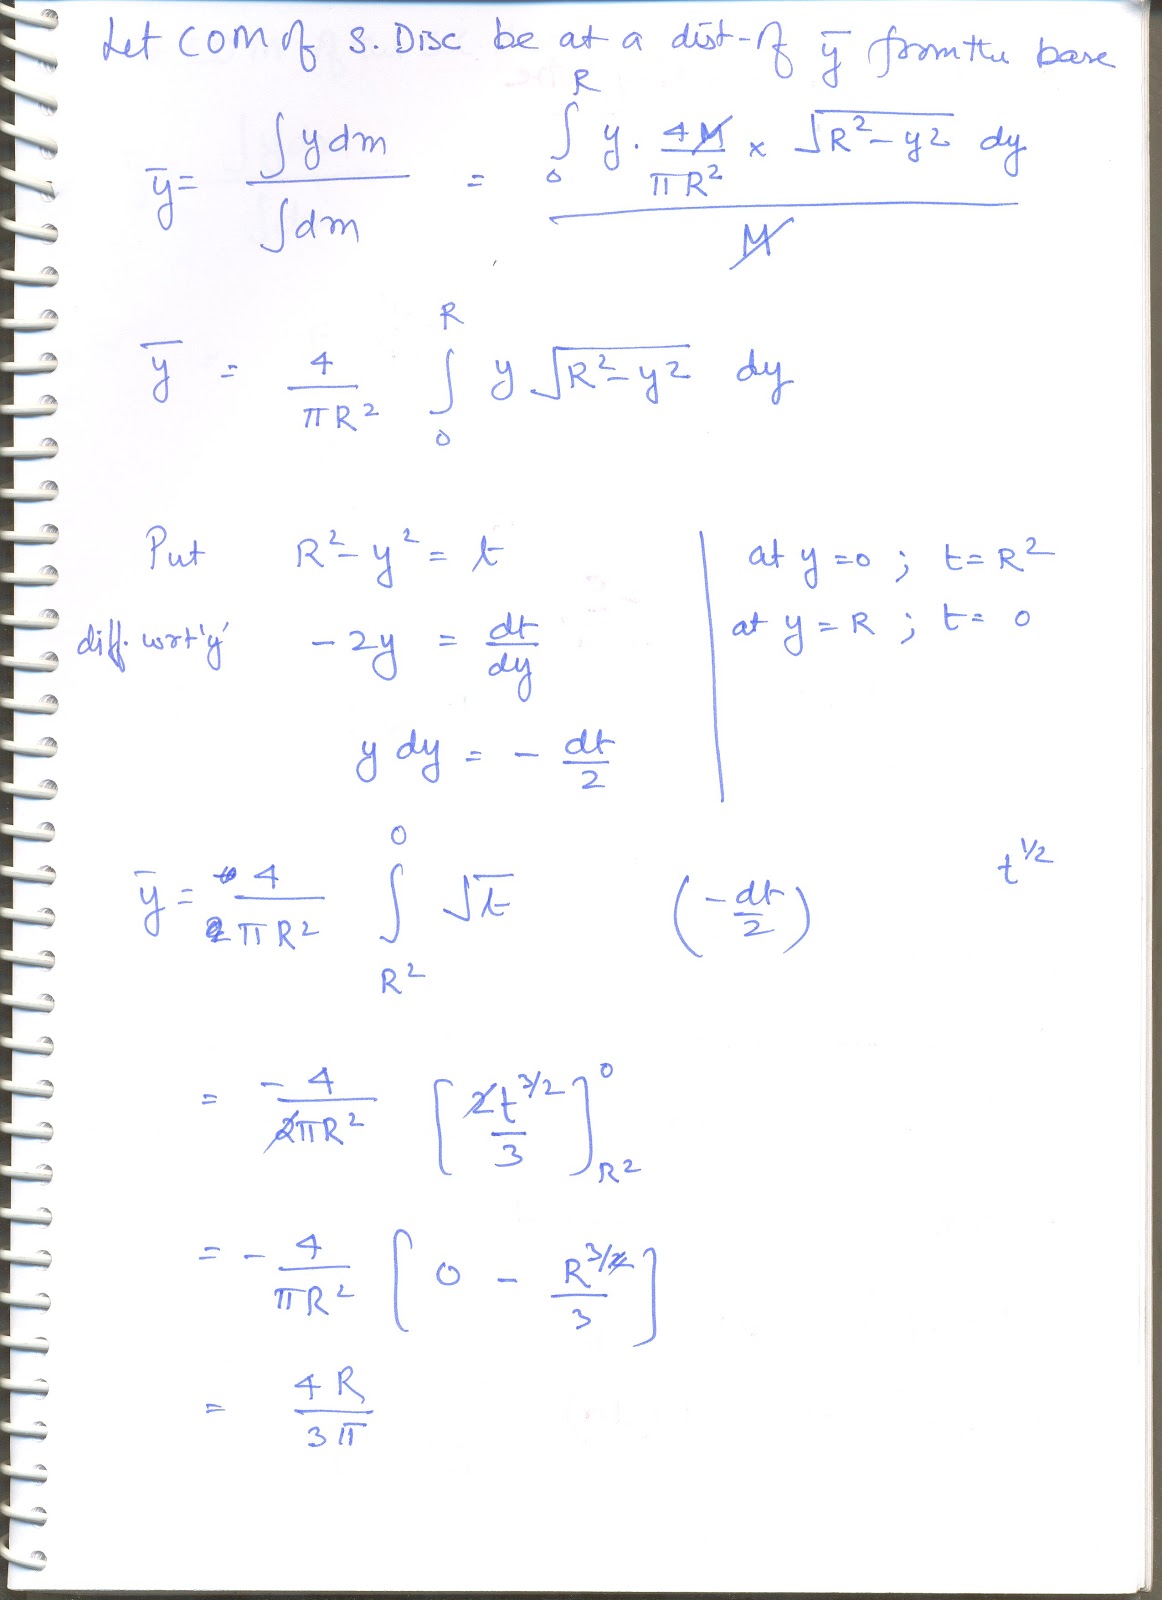 Let COM of S. Disc be at a dist-of ȳ from the base
ȳ = ∫ y dm / ∫ dm = ∫₀ᴿ y. 4M/πR² × √(R²-y²) dy / M
ȳ = 4/πR² ∫₀ᴿ y √(R²-y²) dy
Put R²-y² = t | at y=0 ; t=R²
diff. wrt 'y' -2y = dt/dy | at y=R ; t= 0
y dy = - dt/2
ȳ = 4/πR² ∫_{R²}^{0} √t (-dt/2) t^{1/2}
= -4/2πR² [2t^{3/2}/3]_{R²}^{0}
= - 4/πR² [0 - R³/3]
= 4R/3π